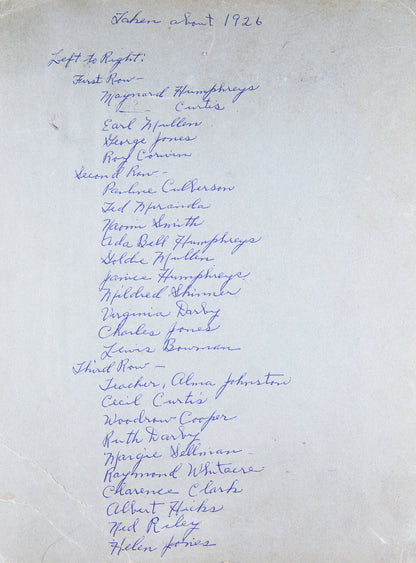 Taken about 1926
Left to Right:
First Row -
Maynard Humphreys
____ Curtis
Earl Mullen
George Jones
Roy Corwin
Second Row -
Pauline Culberson
Ted Miranda
Naomi Smith
Ada Bell Humphreys
Goldie Mullen
Janice Humphreys
Mildred Skinner
Virginia Darby
Charles Jones
Lewis Bowman
Third Row -
Teacher, Alma Johnston
Cecil Curtis
Woodrow Cooper
Ruth Darby
Margie Sellman
Raymond Whitacre
Clarence Clark
Albert Hicks
Ned Riley
Helen Jones